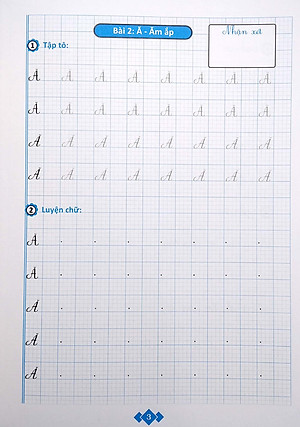 Bài 2: Á - Ấm áp
Nhận xét
1 Tập tô:
Á Á Á Á Á Á Á Á
Á Á Á Á Á Á Á Á
Á Á Á Á Á Á Á Á
Á Á Á Á Á Á Á Á
2 Luyện chữ:
Á
Á
Á
Á
Á
3